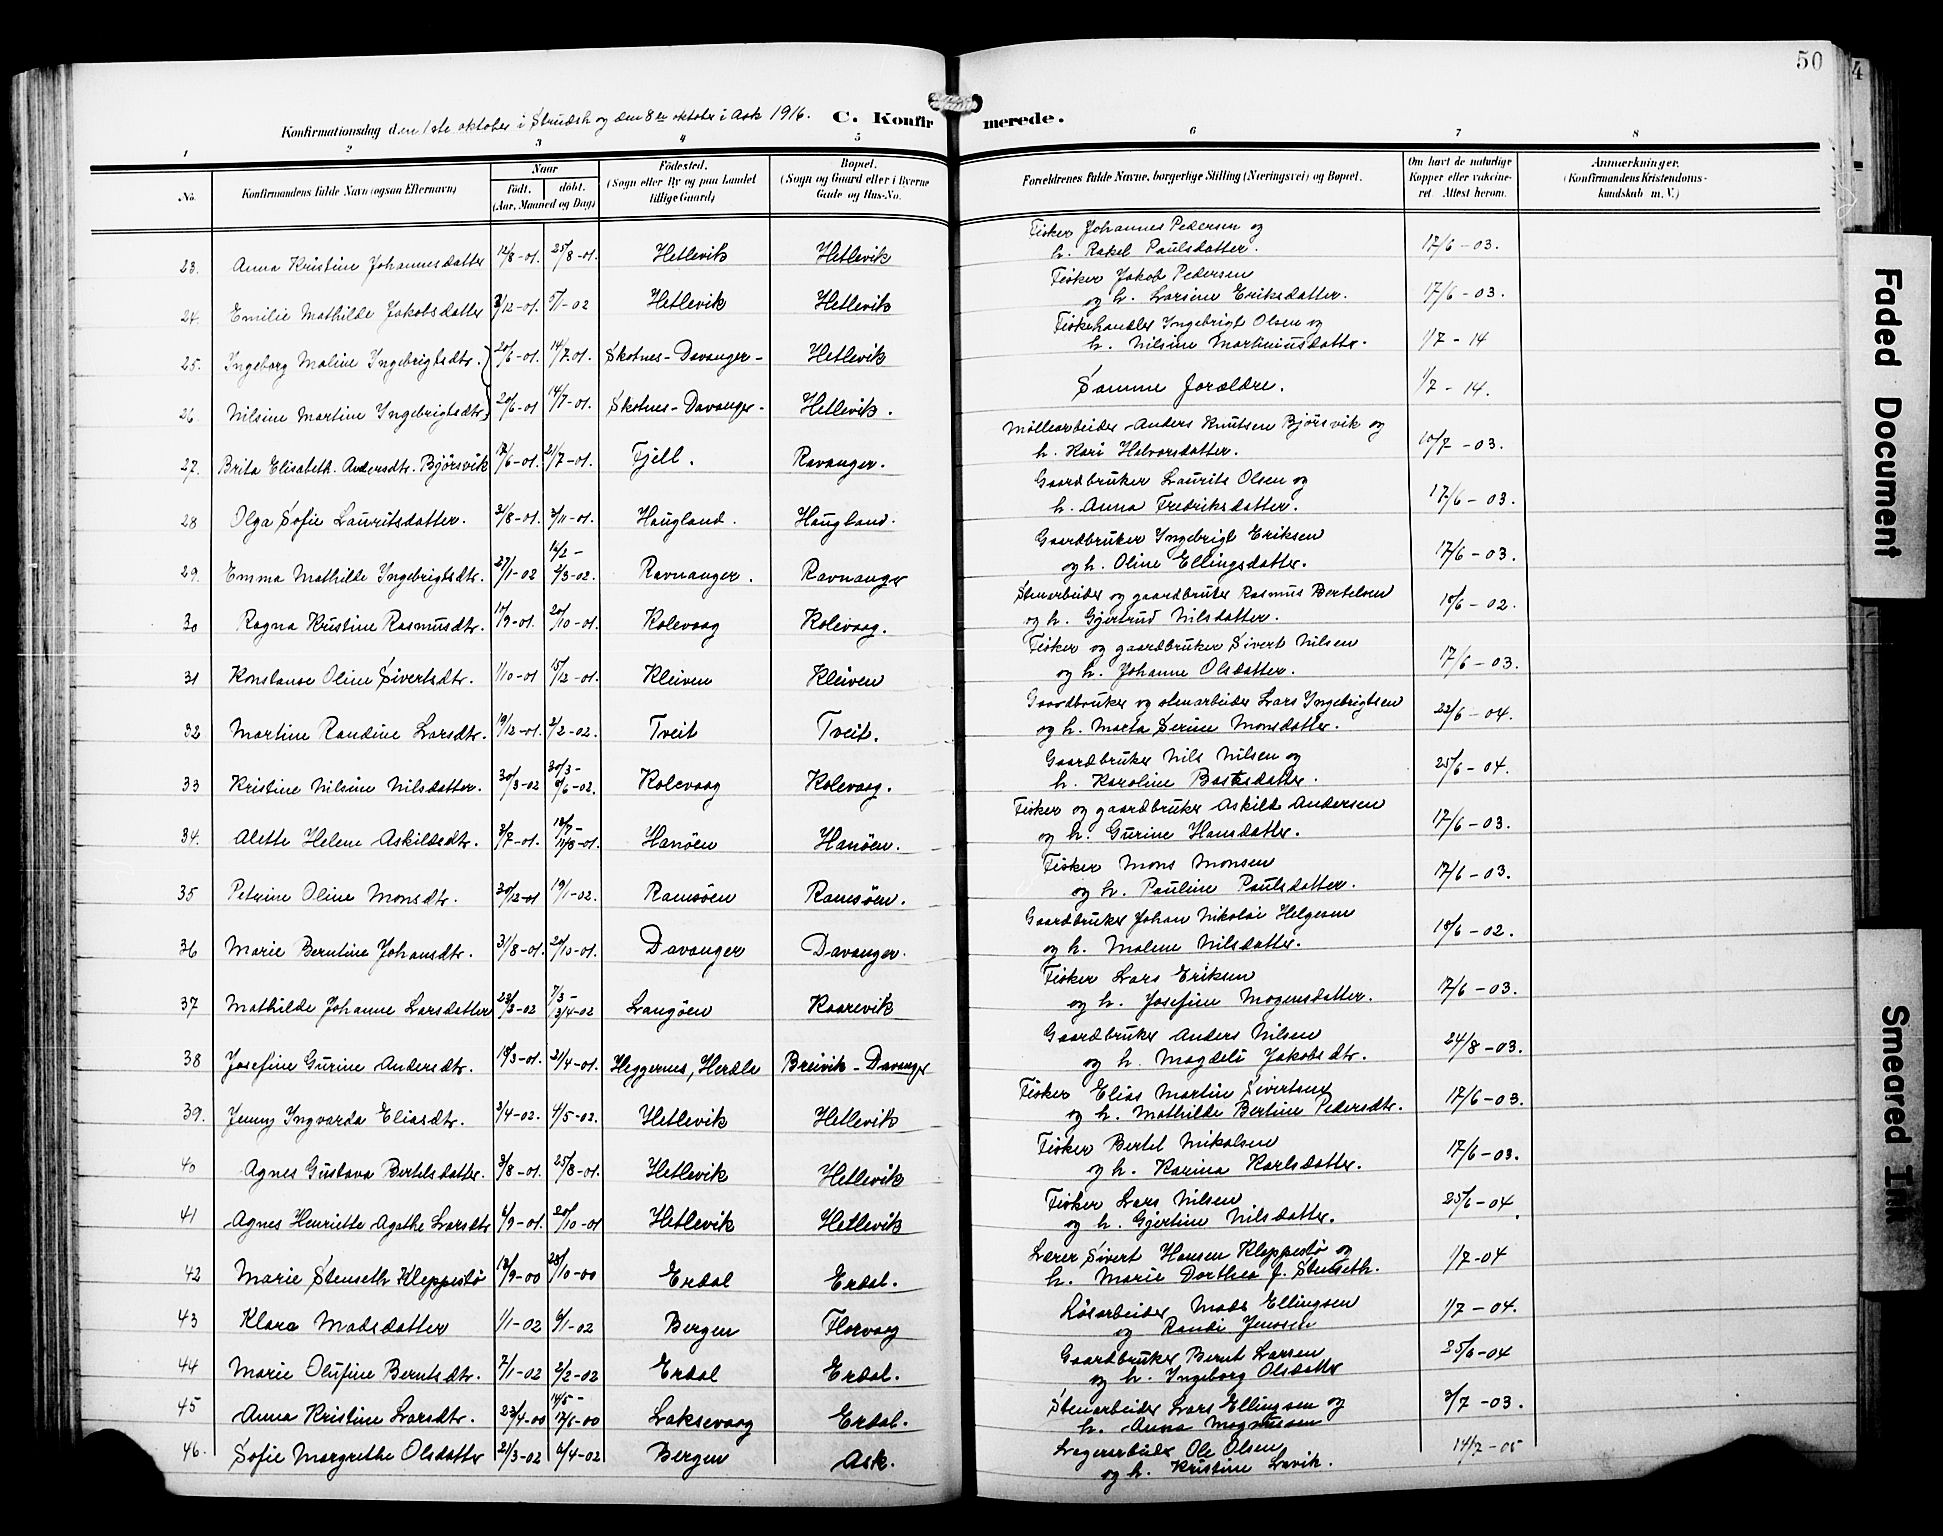 50
4
Konfirmationsdag den 1ste oktober i Strudsh og den 8de oktober i Ask 1916. C. Konfirmerede.
1 2 3 4 5 6 7 8
No. Konfirmandens fulde Navn (ogsaa Efternavn) Naar Født. døbt. (Aar, Maaned og Dag) Fødested. (Sogn eller By og paa Landet tillige Gaard) Bopæl. (Sogn og Gaard eller i Byerne Gade og Hus-No. Forældrenes fulde Navne, borgerlige Stilling (Næringsvei) og Bopæl. Om havt de naturlige Kopper eller vaccineret. Attest herom. Anmærkninger. (Konfirmandens Kristendomskundskab m. V.)
23. Anna Kristine Johannesdatter 12/8-01. 25/8-01. Hetlevik Hetlevik Fisker Johannes Pedersen og
h. Rakel Paulsdatter. 17/6-03.
24. Emilie Mathilde Jakobsdatter /12-01. 5/1-02 Hetlevik Hetlevik Fisker Jakob Pedersen
og h. Larsine Eriksdatter. 17/6-03.
25. Ingeborg Maline Ingebrigtsdtr. 20/6-01. 14/7 01. Skotnes-Davanger- Hetlevik Fiskehandler Ingebrigt Olsen og
h. Nilsine Martiniusdattr. 1/7-14
26. Nilsine Martine Ingebrigtsdtr. 20/6-01 14/7-01. Skotnes-Davanger- Hetlevik. Samme forældre. 1/7-14.
27. Brita Elisabeth. Andersdtr. Bjørsvik 17/6-01. 21/7-01. Fjell. Ravanger. Møllearbeider Anders Knutsen Bjørsvik og
h. Kari Halvorsdatter. 10/7-03.
28 Olga Sofie Lauritsdatter. 31/8-01. 3/11-01. Haugland. Haugland. Gaardbruker Laurits Olsen og
h. Anna Fredriksdatter. 17/6-03.
29. Emma Mathilde Ingebrigtsdtr. 27/1-02 16/2-
2/3-02. Ravnanger. Ravnanger Gaardbruker Ingebrigt Eriksen
og h. Oline Ellingsdatter. 17/6-03.
30 Ragna Kristine Rasmusdtr. /9-01. 20/10-01. Kolevaag Kolevaag. Stenarbeider og gaardbruker Rasmus Bertelsen
og h. Gjertrud Nilsdatter. 18/6-02.
31 Konstanse Oline Sivertsdtr. 1/10-01 15/12-01. Kleiven Kleiven Fisker og gaardbruker Sivert Nilsen
og h. Johanne Olsdatter. 17/6-03.
32 Martine Randine Larsdtr. 19/12-01. 2/2-02. Tveit Tveit. Gaardbruker og stenarbeider Lars Ingebrigtsen
og h. Marta Serine Monsdatter. 22/6-04.
33 Kristine Nilsine Nilsdatter. 30/3-02 30/3-
8/6-02. Kolevaag Kolevaag. Gaardbruker Nils Nilsen og
h. Karoline Baotsdatter. 25/6-04.
34. Alette Helene Askildsdtr. 3/7-01. 18/7-
11/8-01. Hanøen Hanøen. Fisker og gaardbruker Askild Andersen
og h. Gurine Hansdatter. 17/6-03.
35 Petrine Oline Monsdtr. 30/12-01 19/1-02. Ramsøen Ramsøen. Fisker Mons Monsen
og h. Pauline Paulsdatter. 17/6-03.
36 Marie Berntine Johansdtr. 31/8-01. 20/10-01. Davanger Davanger. Gaardbruker Johan Nikolai Helgesen
og h. Malene Nilsdatter. 18/6-02.
37 Mathilde Johanne Larsdatter 23/3-02 7/3-
3/4-02 Langøen Kaarevik Fisker Lars Eriksen
og h. Josefine Mogensdatter. 17/6-03.
38 Josefine Gurine Andersdtr. 18/3-01. 21/4-01. Heggernes, Herdla Breivik-Davanger Gaardbruker Anders Nilsen
og h. Magdeli Jakobsdtr. 24/8-03.
39. Jenny Ingvarda Eliasdtr. 3/4-02. 4/5-02. Hetlevik Hetlevik Fisker Elias Martin Sivertsen
og h. Mathilde Bertine Pedersdtr. 17/6-03.
40 Agnes Gustava Bertelsdatter. 3/8-01. 25/8-01. Hetlevik Hetlevik Fisker Bertel Mikalsen
og h. Karina Karlsdatter. 17/6-03.
41 Agnes Henriette Agathe Larsdtr 6/9-01. 20/10-01 Hetlevik Hetlevik Fisker Lars Nilsen
og h. Gjertine Nilsdatter. 25/6-04.
42 Marie Stenseth Kleppestø 12/9-00 28/10-00 Erdal Erdal. Lærer Sivert Hansen Kleppestø og
h. Marie Dorthea f. Stenseth. 1/7-04
43 Klara Madsdatter 1/1-02 6/1-02 Bergen Florvaag Løsarbeider Mads Ellingsen
og Randi Jenssen 1/7-04.
44 Marie Olufine Berntsdtr. 7/1-02 2/2-02 Erdal Erdal. Gaardbruker Bernt Larsen
og h. Ingeborg Olsdatter 25/6-04
45 Anna Kristine Larsdtr. 23/4-00 14/5-
17/6-00 Laksevaag Erdal. Stenarbeider Lars Ellingsen og
h. Anna Magnusson 3/7-03.
46. Sofie Margrethe Olsdatter 21/3-02 6/4-02 Bergen Ask. Lagerarbeider Ole Olsen
og h. Kristine Lavik. 14/2-05
Faded Document
Smeared Ink